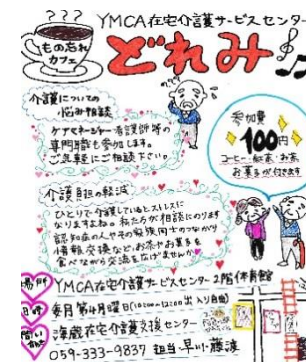 YMCA在宅介護サービスセンター
もの忘れ
カフェ
どれみ
介護についての
悩み相談
ケアマネージャー・看護師等の
専門職も参加します。
ご気軽にご相談下さい。
参加費
100円
コーヒー・紅茶・お茶
お菓子が付きます
介護負担の軽減
ひとりで介護しているとストレスに
なりますよね。私たちが相談にのります
認知症の人やその家族同士のつながり
情報交換など、お茶やお菓子を
食べながら交流を広げませんか
場所
YMCA在宅介護サービスセンター2階(休育館
日時
毎月第4月曜日(10:00~12:00出入り自由)
問い
海蔵在宅介護支援センター
059-333-9837 担当・早川・藤濱